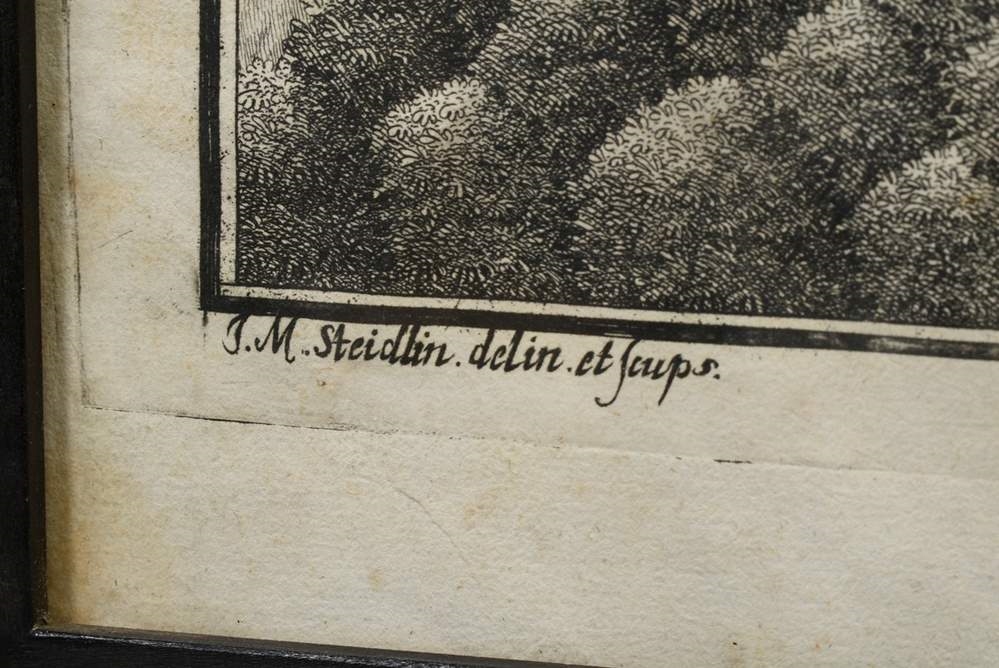 J. M.. Steidlin. delin. et ſcups.